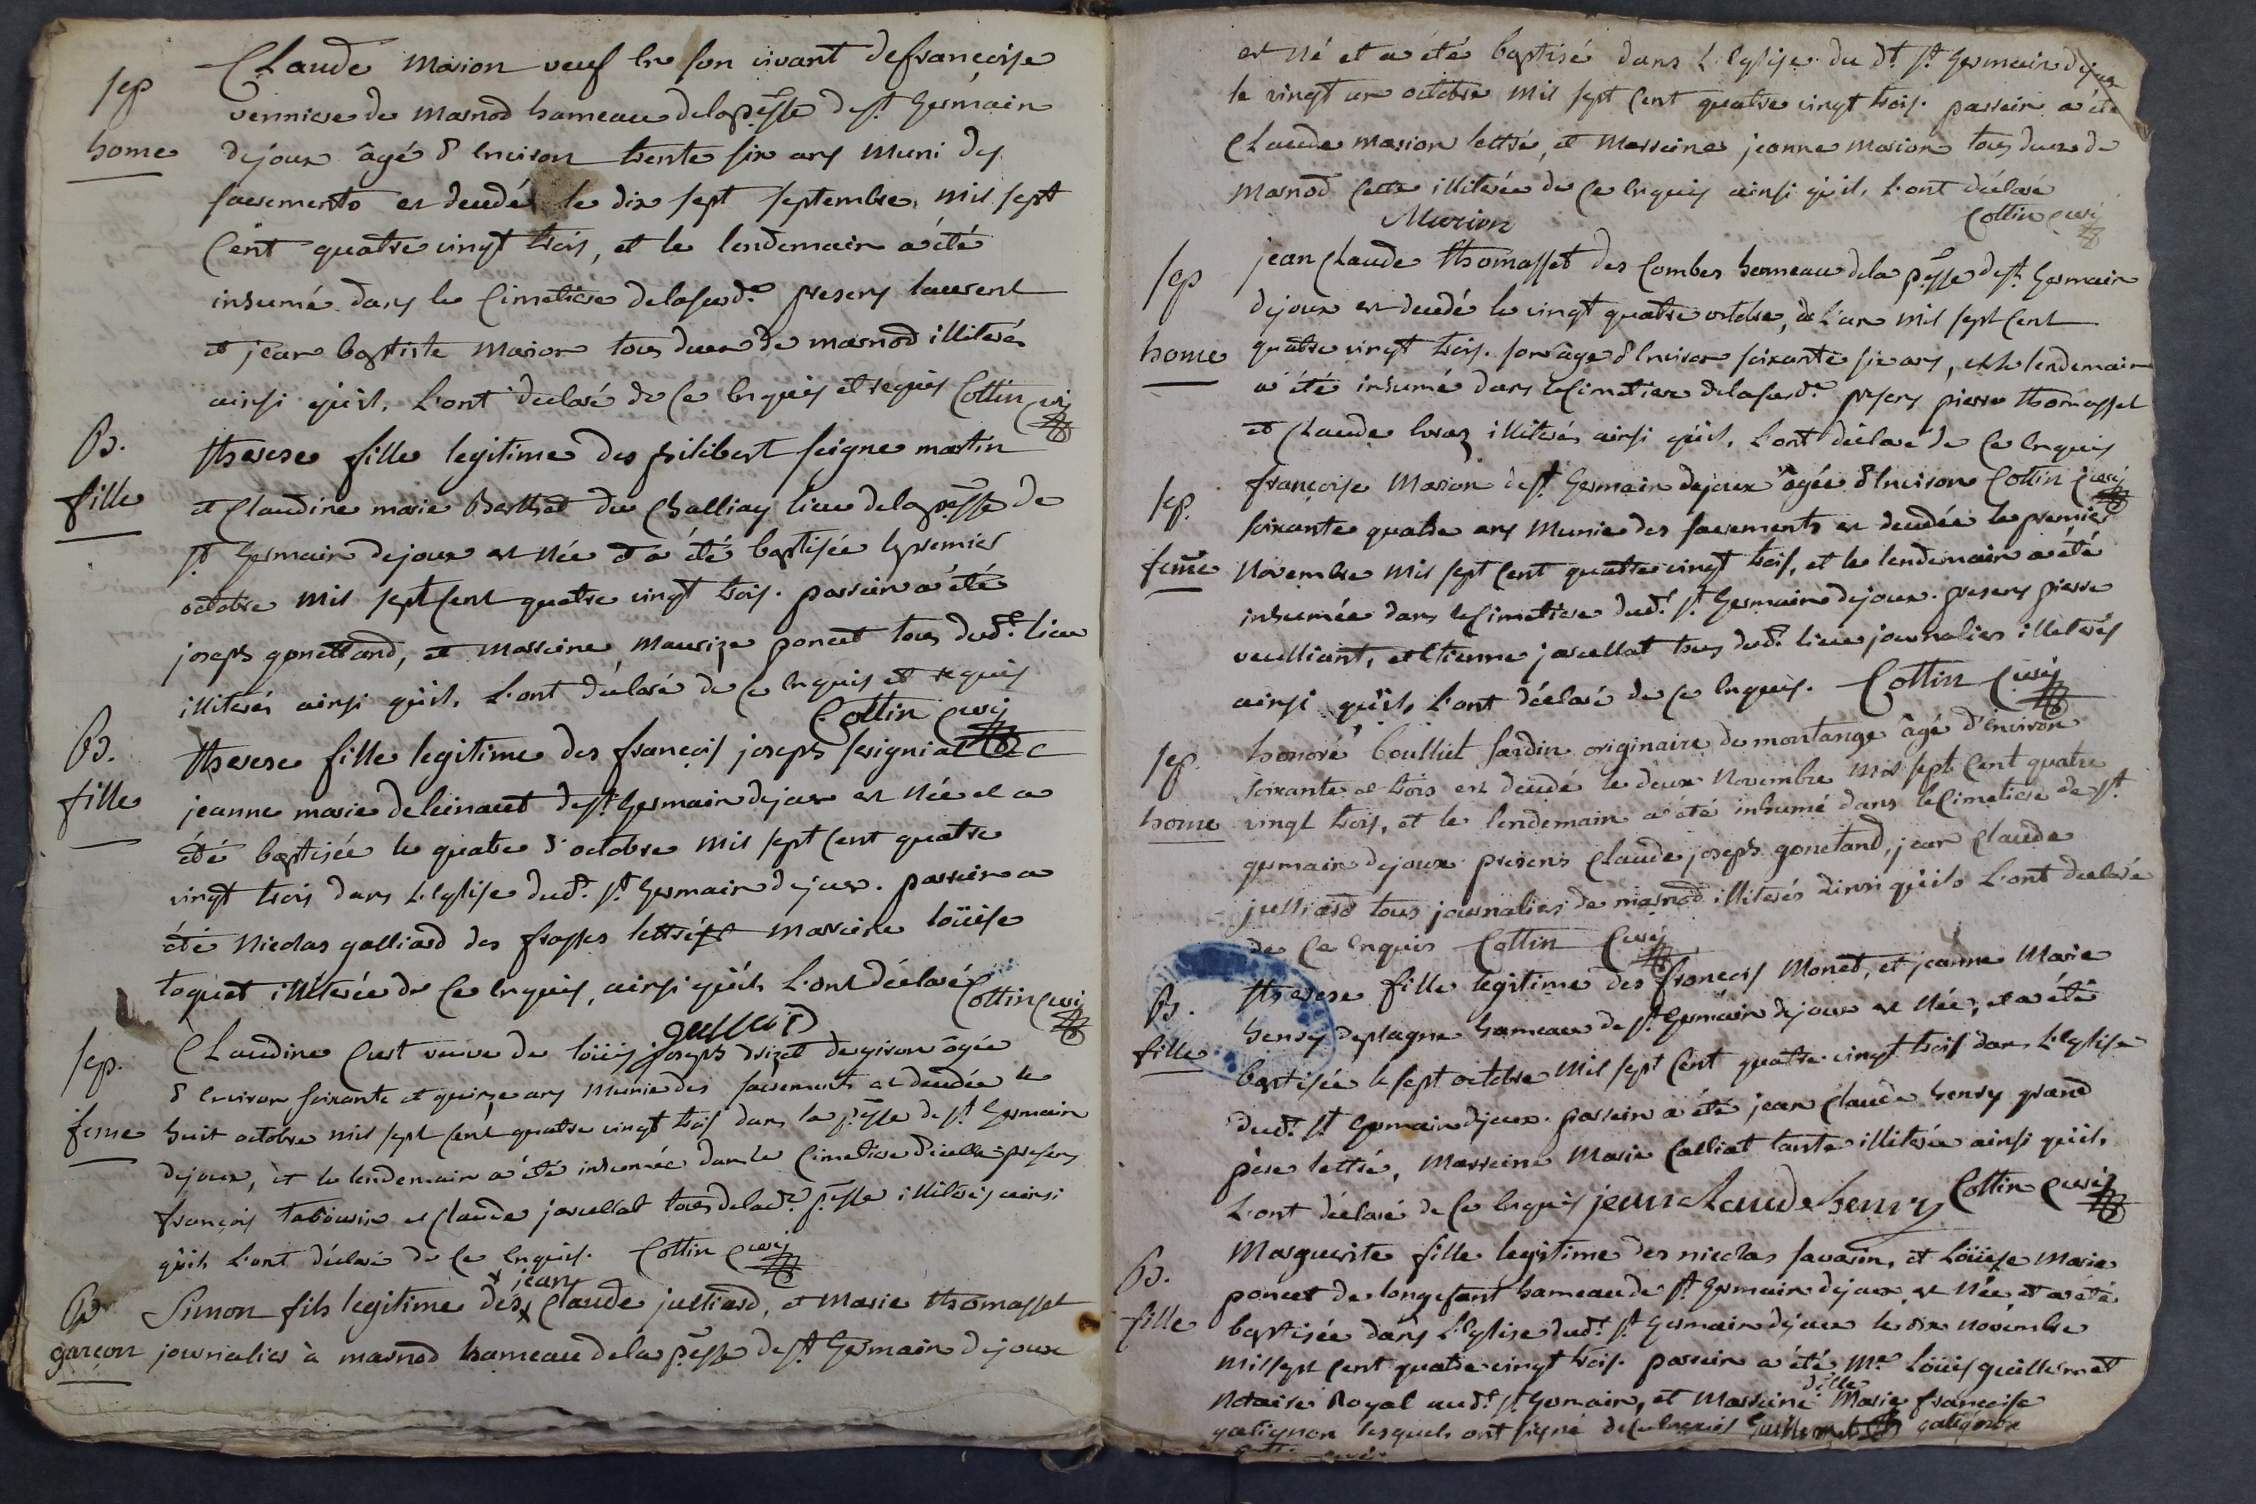 Claude marion veuf en son vivant de françoise
sep
vernier de marnod hameau de la psse de st germain
home
dejoux âgé d'environ trente six ans muni des
sacrements est decedé le dix sept septembre mil sept
cent quatre vingt trois, et le lendemain a été
inhumé dans le cimetiere de la susde presens laurent
et jean baptiste marion tous deux de marnod illiterés
ainsi qu'ils l'ont declaré de ce enquis et requis Cottin curé
B.
fille
therese fille legitime des philibert seigne martin
et claudine marie Berthet du challiay lieu de la psse de
st germain dejoux est née et a été baptisée le premier
octobre mil sept cent quatre vingt trois. parrein a été
joseph gonettand, et marreine maurize poncet tous dudt lieu
illiterés ainsi qu'ils l'ont declaré de ce enquis et requis
Cottin curé
B.
fille
therese fille legitime des françois joseph et
jeanne marie de st germain dejoux est née et a
été baptisée le quatre d'octobre mil sept cent quatre
vingt trois dans l'eglise dudt st germain dejoux. parrein a
été nicolas galliard des frasses lettré et marreine loüise
toquet illiterée de ce enquis, ainsi qu'ils l'ont déclaré Cottin curé
sep.
Claudine Cust veuve de loüis joseph de giron âgée
feme
d'environ soixante et quinze ans munie des sacrements est decedée le
huit octobre mil sept cent quatre vingt trois dans la psse de st germain
dejoux, et le lendemain a été inhumée dans le cimetiere d'icelle presens
françois tabourin et claude jacullat tous de lade psse illiterés ainsi
qu'ils l'ont déclaré de ce enquis. Cottin curé
jean
B
garçon
Simon fils legitime des x claude julliard, et marie thomasset
journalier à marnod hameau de la psse de st germain dejoux
est né et a été baptisé dans l'eglise du dt st germain dejoux
le vingt un octobre mil sept cent quatre vingt trois. parrein a été
claude marion lettré, et marreine jeanne marion tous deux de
marnod cette illiterée de ce enquis ainsi qu'ils l'ont déclaré
Marion Cottin curé
sep
home
jean claude thomasset des combes hameau de la psse de st germain
dejoux est decedé le vingt quatre octobre, de l'an mil sept cent
quatre vingt trois. son âge d'environ soixante six ans, et le lendemain
a été inhumé dans le cimetiere de la susde presens pierre thomasset
et claude illiterés ainsi qu'ils l'ont déclaré de ce enquis
sep.
feme
françoise marion de st germain dejoux âgée d'environ Cottin curé
soixante quatre ans munie des sacrements est decedée le premier
novembre mil sept cent quatre vingt trois, et le lendemain a été
inhumée dans le cimetiere dudt st germain dejoux. presens pierre
veulliant, et etienne jacullat tous dudt lieu journaliers illeterés
ainsi qu'ils l'ont déclaré de ce enquis. Cottin curé
sep.
home
honoré boulliet originaire de montange âgé d'environ
soixante et trois est decedé le deux novembre mil sept cent quatre
vingt trois, et le lendemain a été inhumé dans le cimetiere de st
germain dejoux presens claude joseph gonetand, jean claude
julliard tous journaliers de marnod illiterés ainsi qu'ils l'ont declaré
de ce enquis Cottin curé
B.
fille
therese fille legitime des françois monet, et jeanne marie
henry deplagne hameau de st germain dejoux est née, et a été
baptisée le sept octobre mil sept cent quatre vingt trois dans l'eglise
dudt st germain dejoux. parrein a été jean claude henry grand
père lettré, marreine marie calliat tante illiterée ainsi qu'ils
l'ont déclaré de ce enquis jean claude henry Cottin curé
B.
fille
Marguerite fille legitime des nicolas savarin, et loüise marie
poncet de longefant hameau de st germain dejoux est née, et a été
baptisée dans l'eglise dudt st germain dejoux le dix novembre
mil sept cent quatre vingt trois. parrein a été mre loüis guillermet
notaire Royal audt st germain, et marreine dlle marie françoise
galignon lesquels ont signé de ce enquis Guillermet galignon